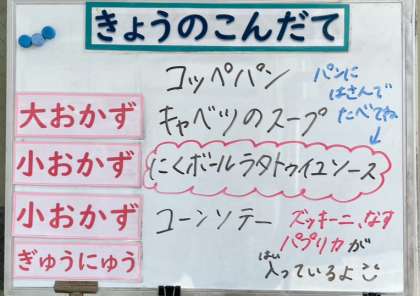 きょうのこんだて
コッペパン
パンに
はさんで
たべてね
大おかず キャベツのスープ
小おかず にくボールラタトゥイユソース
小おかず コーンソテー
ズッキーニ、なす
パプリカが
はい
入っているよ
ぎゅうにゅう